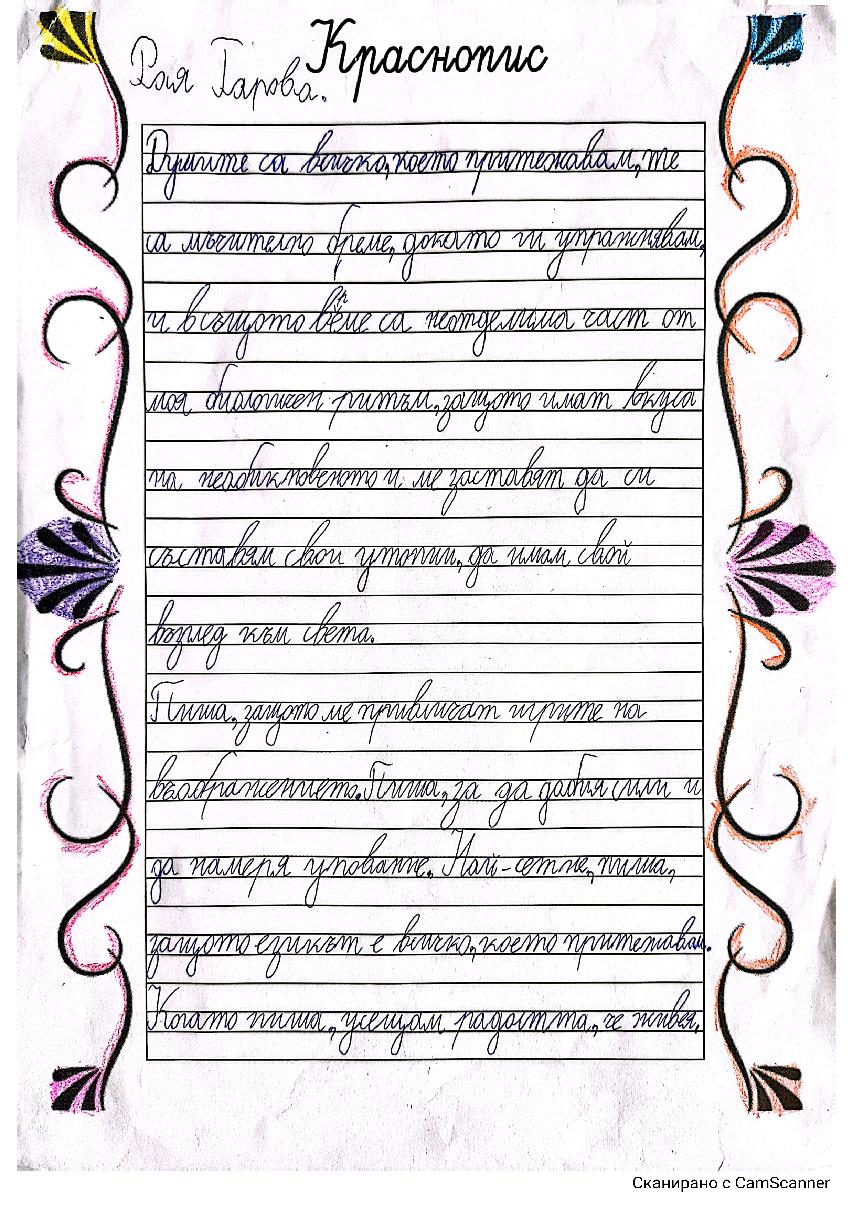 Краснопис
Рая Гарова.
Думите са всичко, което притежавам, те
са мъчително бреме, докато ги упражнявам,
и в същото време са неотделима част от
моя биологичен ритъм, защото имат вкуса
на необикновеното и ме заставят да си
съставям свои утопии, да имам свой
възглед към света.
Пиша, защото ме привличат игрите на
въображението. Пиша, за да добия сили и
да намеря упование. Най-сетне, пиша,
защото езикът е всичко, което притежавам.
Когато пиша, усещам радостта, че живея.
Сканирано с CamScanner